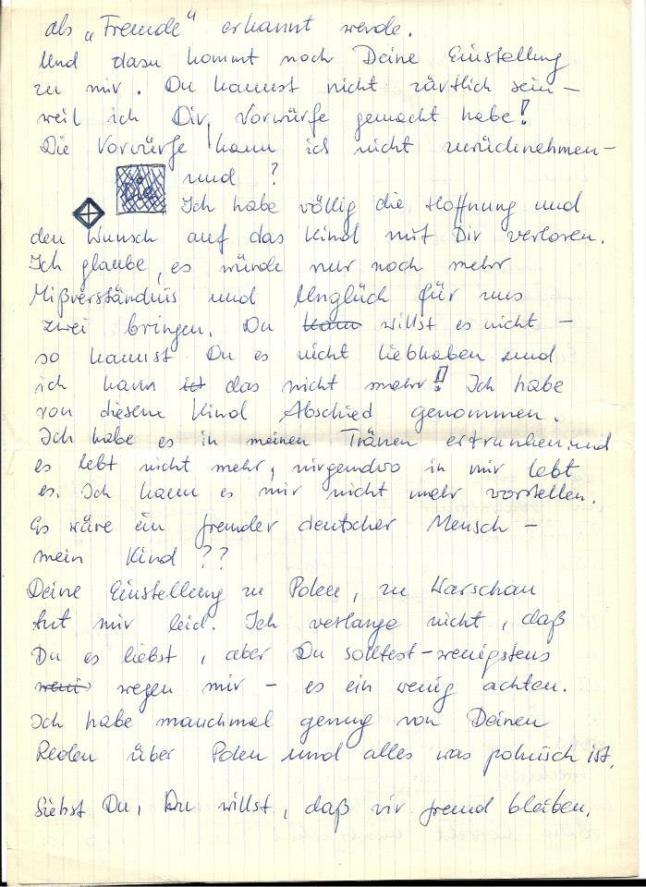 als „Fremde" erkannt werde.
Und dazu kommt noch Deine Einstellung
zu mir. Du kannst nicht zärtlich sein –
weil ich Dir Vorwürfe gemacht habe!
Die Vorwürfe kann ich nicht zurücknehmen –
und ?
Ich habe völlig die Hoffnung und
den Wunsch auf das Kind mit Dir verloren.
Ich glaube, es würde nur noch mehr
Mißverständnis und Unglück für uns
zwei bringen. Du kann willst es nicht –
so kannst Du es nicht liebhaben und
ich kann ist das nicht mehr! Ich habe
von diesem Kind Abschied genommen.
Ich habe es in meinen Tränen ertrunken und
es lebt nicht mehr, nirgendwo in mir lebt
es. Ich kann es mir nicht mehr vorstellen.
Es wäre ein fremder deutscher Mensch –
mein Kind ??
Deine Einstellung zu Polen, zu Warschau
tut mir leid. Ich verlange nicht, daß
Du es liebst, aber Du solltest – wenigstens
wegen mir – es ein wenig achten.
Ich habe manchmal genug von Deinen
Reden über Polen und alles was polnisch ist.
Siehst Du, Du willst, daß wir fremd bleiben.